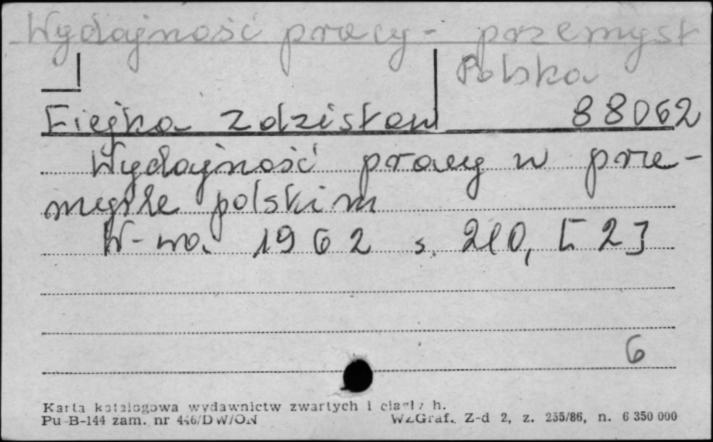 Wydajność pracy - przemysł
Polska
Fiejka Zdzisław 88062
Wydajność pracy w prze-
myśle polskim
W-wa. 1962 s. 210, [2]
6
Karta katalogowa wydawnictw zwartych i ciągł. h.
Pu-B-144 zam. nr 446/DW/ON WZGraf. Z-d 2, z. 255/86, n. 6 350 000